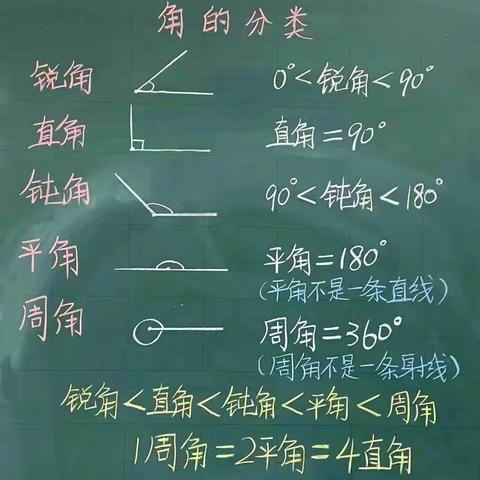 角的分类
锐角 0°<锐角<90°
直角 直角=90°
钝角 90°<钝角<180°
平角 平角=180°
(平角不是一条直线)
周角 周角=360°
(周角不是一条射线)
锐角<直角<钝角<平角<周角
1周角=2平角=4直角